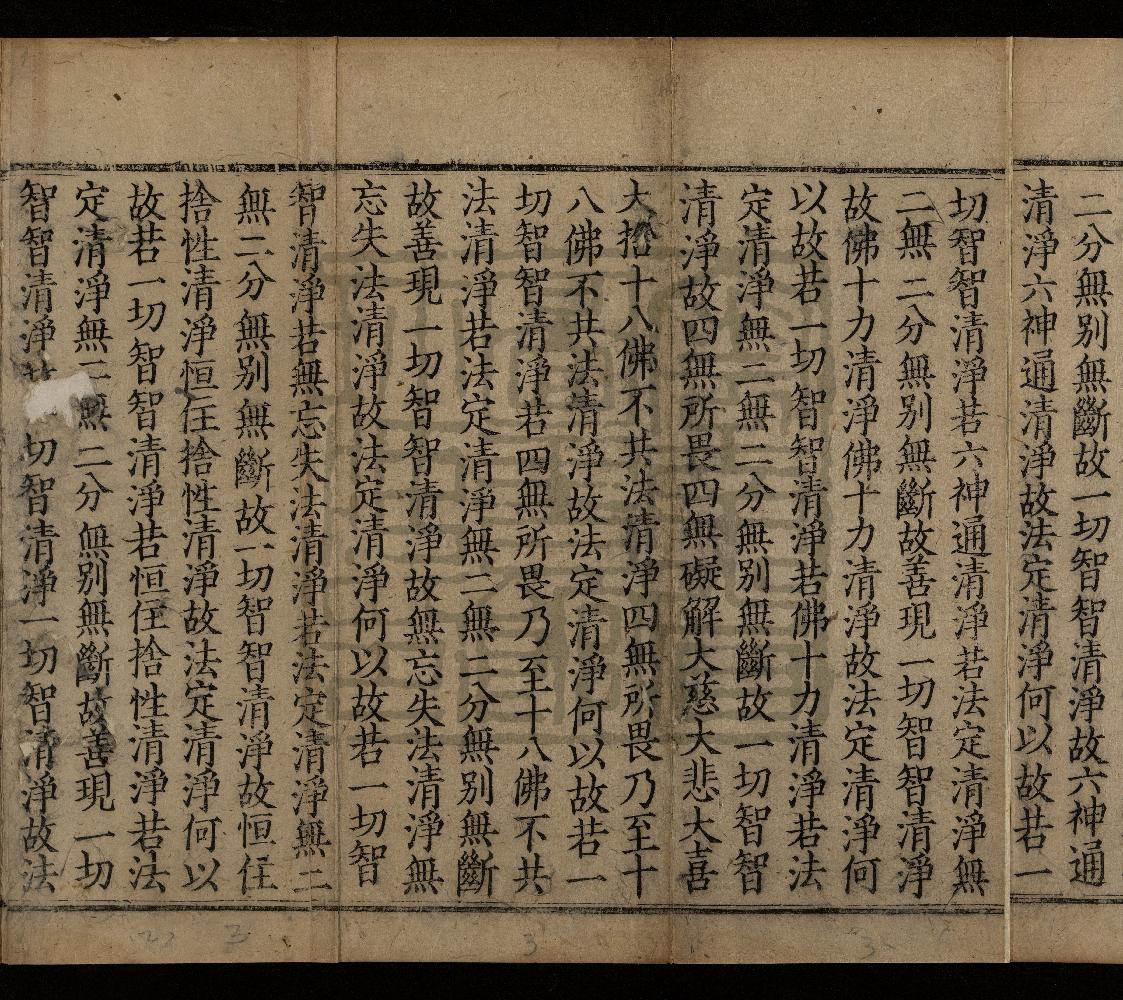 二分無别無斷故一切智智清淨故六神通
清淨六神通清淨故法定清淨何以故若一
切智智清淨若六神通清淨若法定清淨無
二無二分無别無斷故善現一切智智清淨
故佛十力清淨佛十力清淨故法定清淨何
以故若一切智智清淨若佛十力清淨若法
定清淨無二無二分無别無斷故一切智智
清淨故四無所畏四無礙解大慈大悲大喜
大捨十八佛不共法清淨四無所畏乃至十
八佛不共法清淨故法定清淨何以故若一
切智智清淨若四無所畏乃至十八佛不共
法清淨若法定清淨無二無二分無别無斷
故善現一切智智清淨故無忘失法清淨無
忘失法清淨故法定清淨何以故若一切智
智清淨若無忘失法清淨若法定清淨無二
無二分無别無斷故一切智智清淨故恒住
捨性清淨恒住捨性清淨故法定清淨何以
故若一切智智清淨若恒住捨性清淨若法
定清淨無二無二分無别無斷故善現一切
智智清淨切智清淨一切智清淨故法